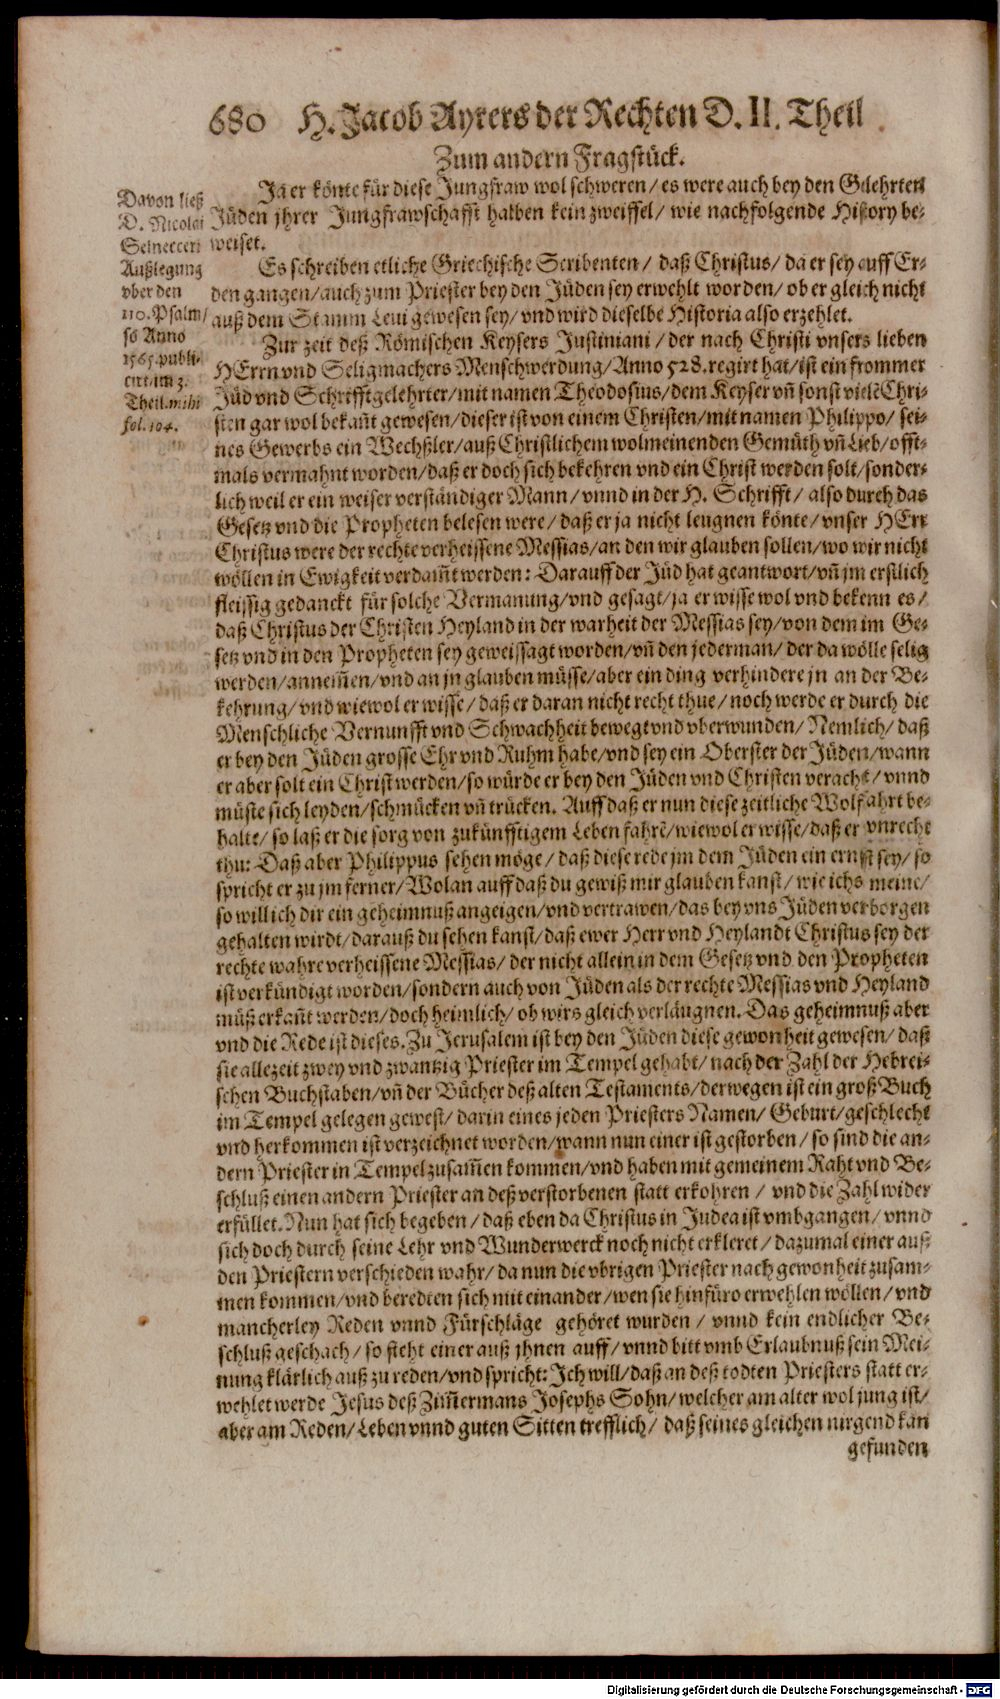 680 H. Jacob Ayrers der Rechten D. II. Theil
Zum andern Fragstück.
Ja er könte für diese Jungfraw wol schweren/ es were auch bey den Gelehrten
Jüden jhrer Jungfrawschafft halben kein zweiffel/ wie nachfolgende History be-
weiset.
Davon ließ
D. Nicolai
Selnecceri
Außlegung
vber den
110. Psalm/
so Anno
1565. publi-
cirt/im 3.
Theil. mihi
fol. 104.
Es schreiben etliche Griechische Scribenten/ daß Christus/ da er sey auff Er-
den gangen/auch zum Priester bey den Jüden sey erwehlt worden/ ob er gleich nicht
auß dem Stamm Leui gewesen sey/ vnd wird dieselbe Historia also erzehlet.
Zur zeit deß Römischen Keysers Justiniani/ der nach Christi vnsers lieben
HErrn vnd Seligmachers Menschwerdung/Anno 528. regirt hat/ ist ein frommer
Jüd vnd Schrifftgelehrter/ mit namen Theodosius/dem Keyser vñ sonst vielē Chri-
sten gar wol bekañt gewesen/dieser ist von einem Christen/mit namen Philippo/ sei-
nes Gewerbs ein Wechßler/auß Christlichem wolmeinenden Gemüth vñ Lieb/offt-
mals vermahnt worden/daß er doch sich bekehren vnd ein Christ werden solt/sonder-
lich weil er ein weiser verständiger Mann/ vnnd in der H. Schrifft/ also durch das
Gesetz vnd die Propheten belesen were/ daß er ja nicht leugnen könte/ vnser HErr
Christus were der rechte verheissene Messias/an den wir glauben sollen/wo wir nicht
wöllen in Ewigkeit verdam̃t werden: Darauff der Jüd hat geantwort/vñ jm erstlich
fleissig gedanckt für solche Vermanung/vnd gesagt/ja er wisse wol vnd bekenn es/
daß Christus der Christen Heyland in der warheit der Messias sey/von dem im Ge-
setz vnd in den Propheten sey geweissagt worden/vñ den jederman/ der da wölle selig
werden/annem̃en/vnd an jn glauben müsse/aber ein ding verhindere jn an der Be-
kehrung/vnd wiewol er wisse/ daß er daran nicht recht thue/ noch werde er durch die
Menschliche Vernunfft vnd Schwachheit bewegt vnd vberwunden/ Nemlich/ daß
er bey den Jüden grosse Ehr vnd Ruhm habe/vnd sey ein Oberster der Jüden/wann
er aber solt ein Christ werden/so würde er bey den Jüden vnd Christen veracht/ vnnd
müste sich leyden/schmücken vñ trücken. Auff daß er nun diese zeitliche Wolfahrt be-
halte/ so laß er die sorg von zukünfftigem Leben fahrē/wiewol er wisse/daß er vnrecht
thu: Daß aber Philippus sehen möge/ daß diese rede jm dem Jüden ein ernst sey/ so
spricht er zu jm ferner/Wolan auff daß du gewiß mir glauben kanst/ wie ichs meine/
so will ich dir ein geheimnuß anzeigen/vnd vertrawen/das bey vns Jüden verborgen
gehalten wirdt/darauß du sehen kanst/daß ewer Herr vnd Heylandt Christus sey der
rechte wahre verheissene Messias/ der nicht allein in dem Gesetz vnd den Propheten
ist verkündigt worden/sondern auch von Jüden als der rechte Messias vnd Heyland
müß erkañt werden/doch heimlich/ ob wirs gleich verläugnen. Das geheimnuß aber
vnd die Rede ist dieses. Zu Jerusalem ist bey den Jüden diese gewonheit gewesen/ daß
sie allezeit zwey vnd zwantzig Priester im Tempel gehabt/ nach der Zahl der Hebrei-
schen Buchstaben/vñ der Bücher deß alten Testaments/derwegen ist ein groß Buch
im Tempel gelegen gewest/ darin eines jeden Priesters Namen/ Geburt/geschlecht
vnd herkommen ist verzeichnet worden/wann nun einer ist gestorben/ so sind die an-
dern Priester in Tempel zusam̃en kommen/vnd haben mit gemeinem Raht vnd Be-
schluß einen andern Priester an deß verstorbenen statt erkohren/ vnd die Zahl wider
erfüllet. Nun hat sich begeben/ daß eben da Christus in Judea ist vmbgangen/ vnnd
sich doch durch seine Lehr vnd Wunderwerck noch nicht erkleret/ dazumal einer auß
den Priestern verschieden wahr/ da nun die vbrigen Priester nach gewonheit zusam-
men kommen/vnd beredten sich mit einander/wen sie hinfüro erwehlen wöllen/ vnd
mancherley Reden vnnd Fürschläge gehöret wurden/ vnnd kein endlicher Be-
schluß geschach/ so steht einer auß jhnen auff/ vnnd bitt vmb Erlaubnuß sein Mei-
nung klärlich auß zu reden/vnd spricht: Ich will/daß an deß todten Priesters statt er-
wehlet werde Jesus deß Zim̃ermans Josephs Sohn/welcher am alter wol jung ist/
aber am Reden/Leben vnnd guten Sitten trefflich/ daß seines gleichen nirgend kan
gefunden
Digitalisierung gefördert durch die Deutsche Forschungsgemeinschaft - DFG